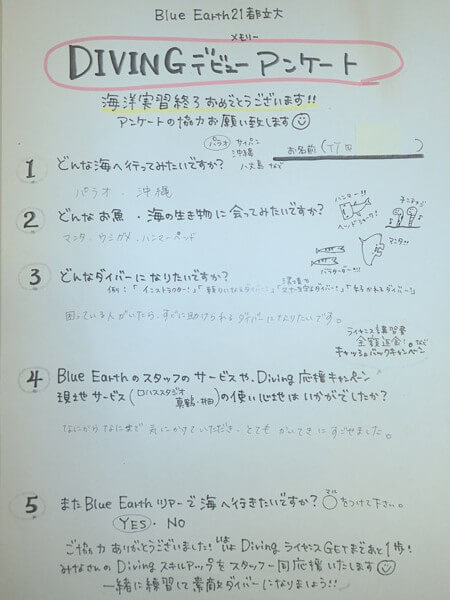 Blue Earth21都立大
メモリー
DIVINGデビューアンケート
海洋実習終了おめでとうございます!!
アンケートの協力お願い致します
パラオ サイパン
沖縄
八丈島 など
お名前(竹田 )
1 どんな海へ行ってみたいですか?
パラオ・沖縄
2 どんなお魚・海の生き物に会ってみたいですか?
ハンマー!!
ヘッドシャーク!
チンアナゴ
マンタ!!
バラクーダー!!!
マンタ・ウミガメ・ハンマーヘッド
3 どんなダイバーになりたいですか?
例:「インストラクター!」「頼りになるダイバー!」「環境を守るダイバー!」
困っている人がいたら、すぐに助けられるダイバーになりたいです。
ライセンス講習費
全額返金!など
キャッシュバックキャンペーン
4 Blue Earthのスタッフのサービスや、Diving応援キャンペーン
現地サービス(ロハススタジオ
真鶴・井田)の使い心地はいかがでしたか?
なにからなにまで気にかけていただき、とても すごせました。
5 またBlue Earthツアーで海へ行きたいですか?○をつけて下さい。
マル
YES・NO
ご協力ありがとうございました! DivingライセンスGETまであと1歩!
みなさんのDivingスキルアップをスタッフ一同応援いたします
一緒に練習して素敵ダイバーになりましょう!!